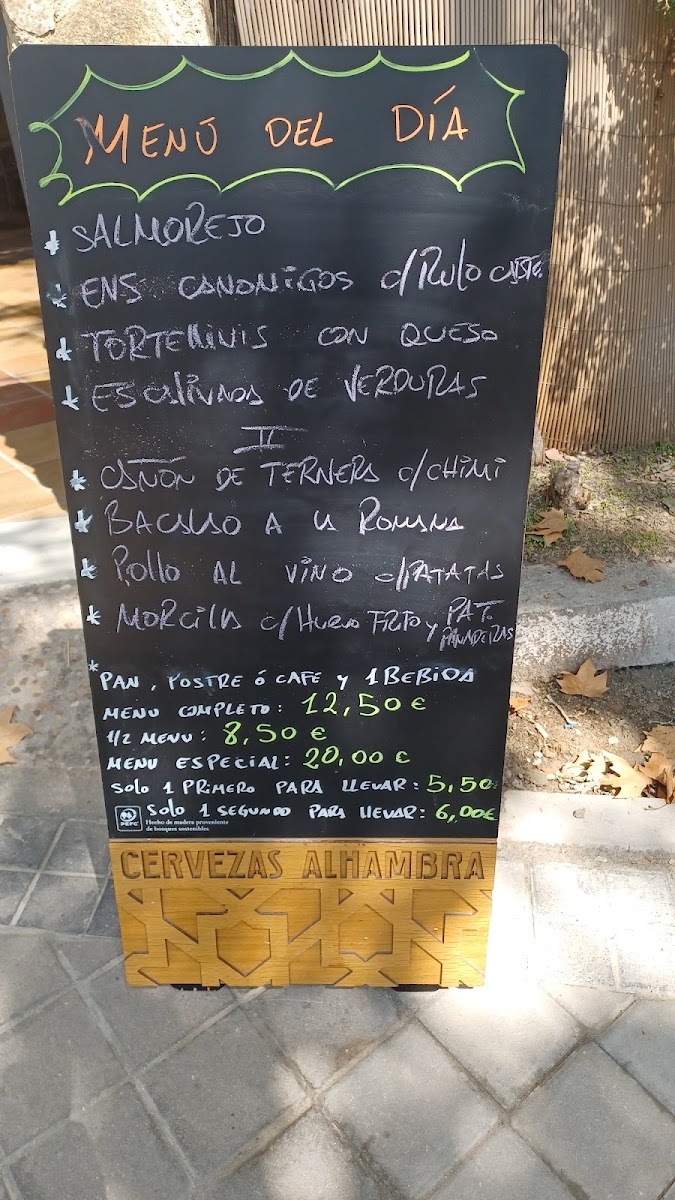 MENÚ DEL DÍA
* SALMOREJO
* ENS CANONIGOS c/RULO
* TORTELLINIS CON QUESO
* ESCALIVADA DE VERDURAS
II
* CAÑÓN DE TERNERA c/CHIMI
* BACALAO A LA ROMANA
* POLLO AL VINO c/PATATAS
* MORCILLA c/HUEVO FRITO y PAT. PANADERAS
* PAN, POSTRE ó CAFÉ y 1 BEBIDA
MENU COMPLETO: 12,50 €
1/2 MENU: 8,50 €
MENU ESPECIAL: 20,00 €
SOLO 1 PRIMERO PARA LLEVAR: 5,50
SOLO 1 SEGUNDO PARA LLEVAR: 6,00€
PEFC
Hecho de madera proveniente
de bosques sostenibles
CERVEZAS ALHAMBRA